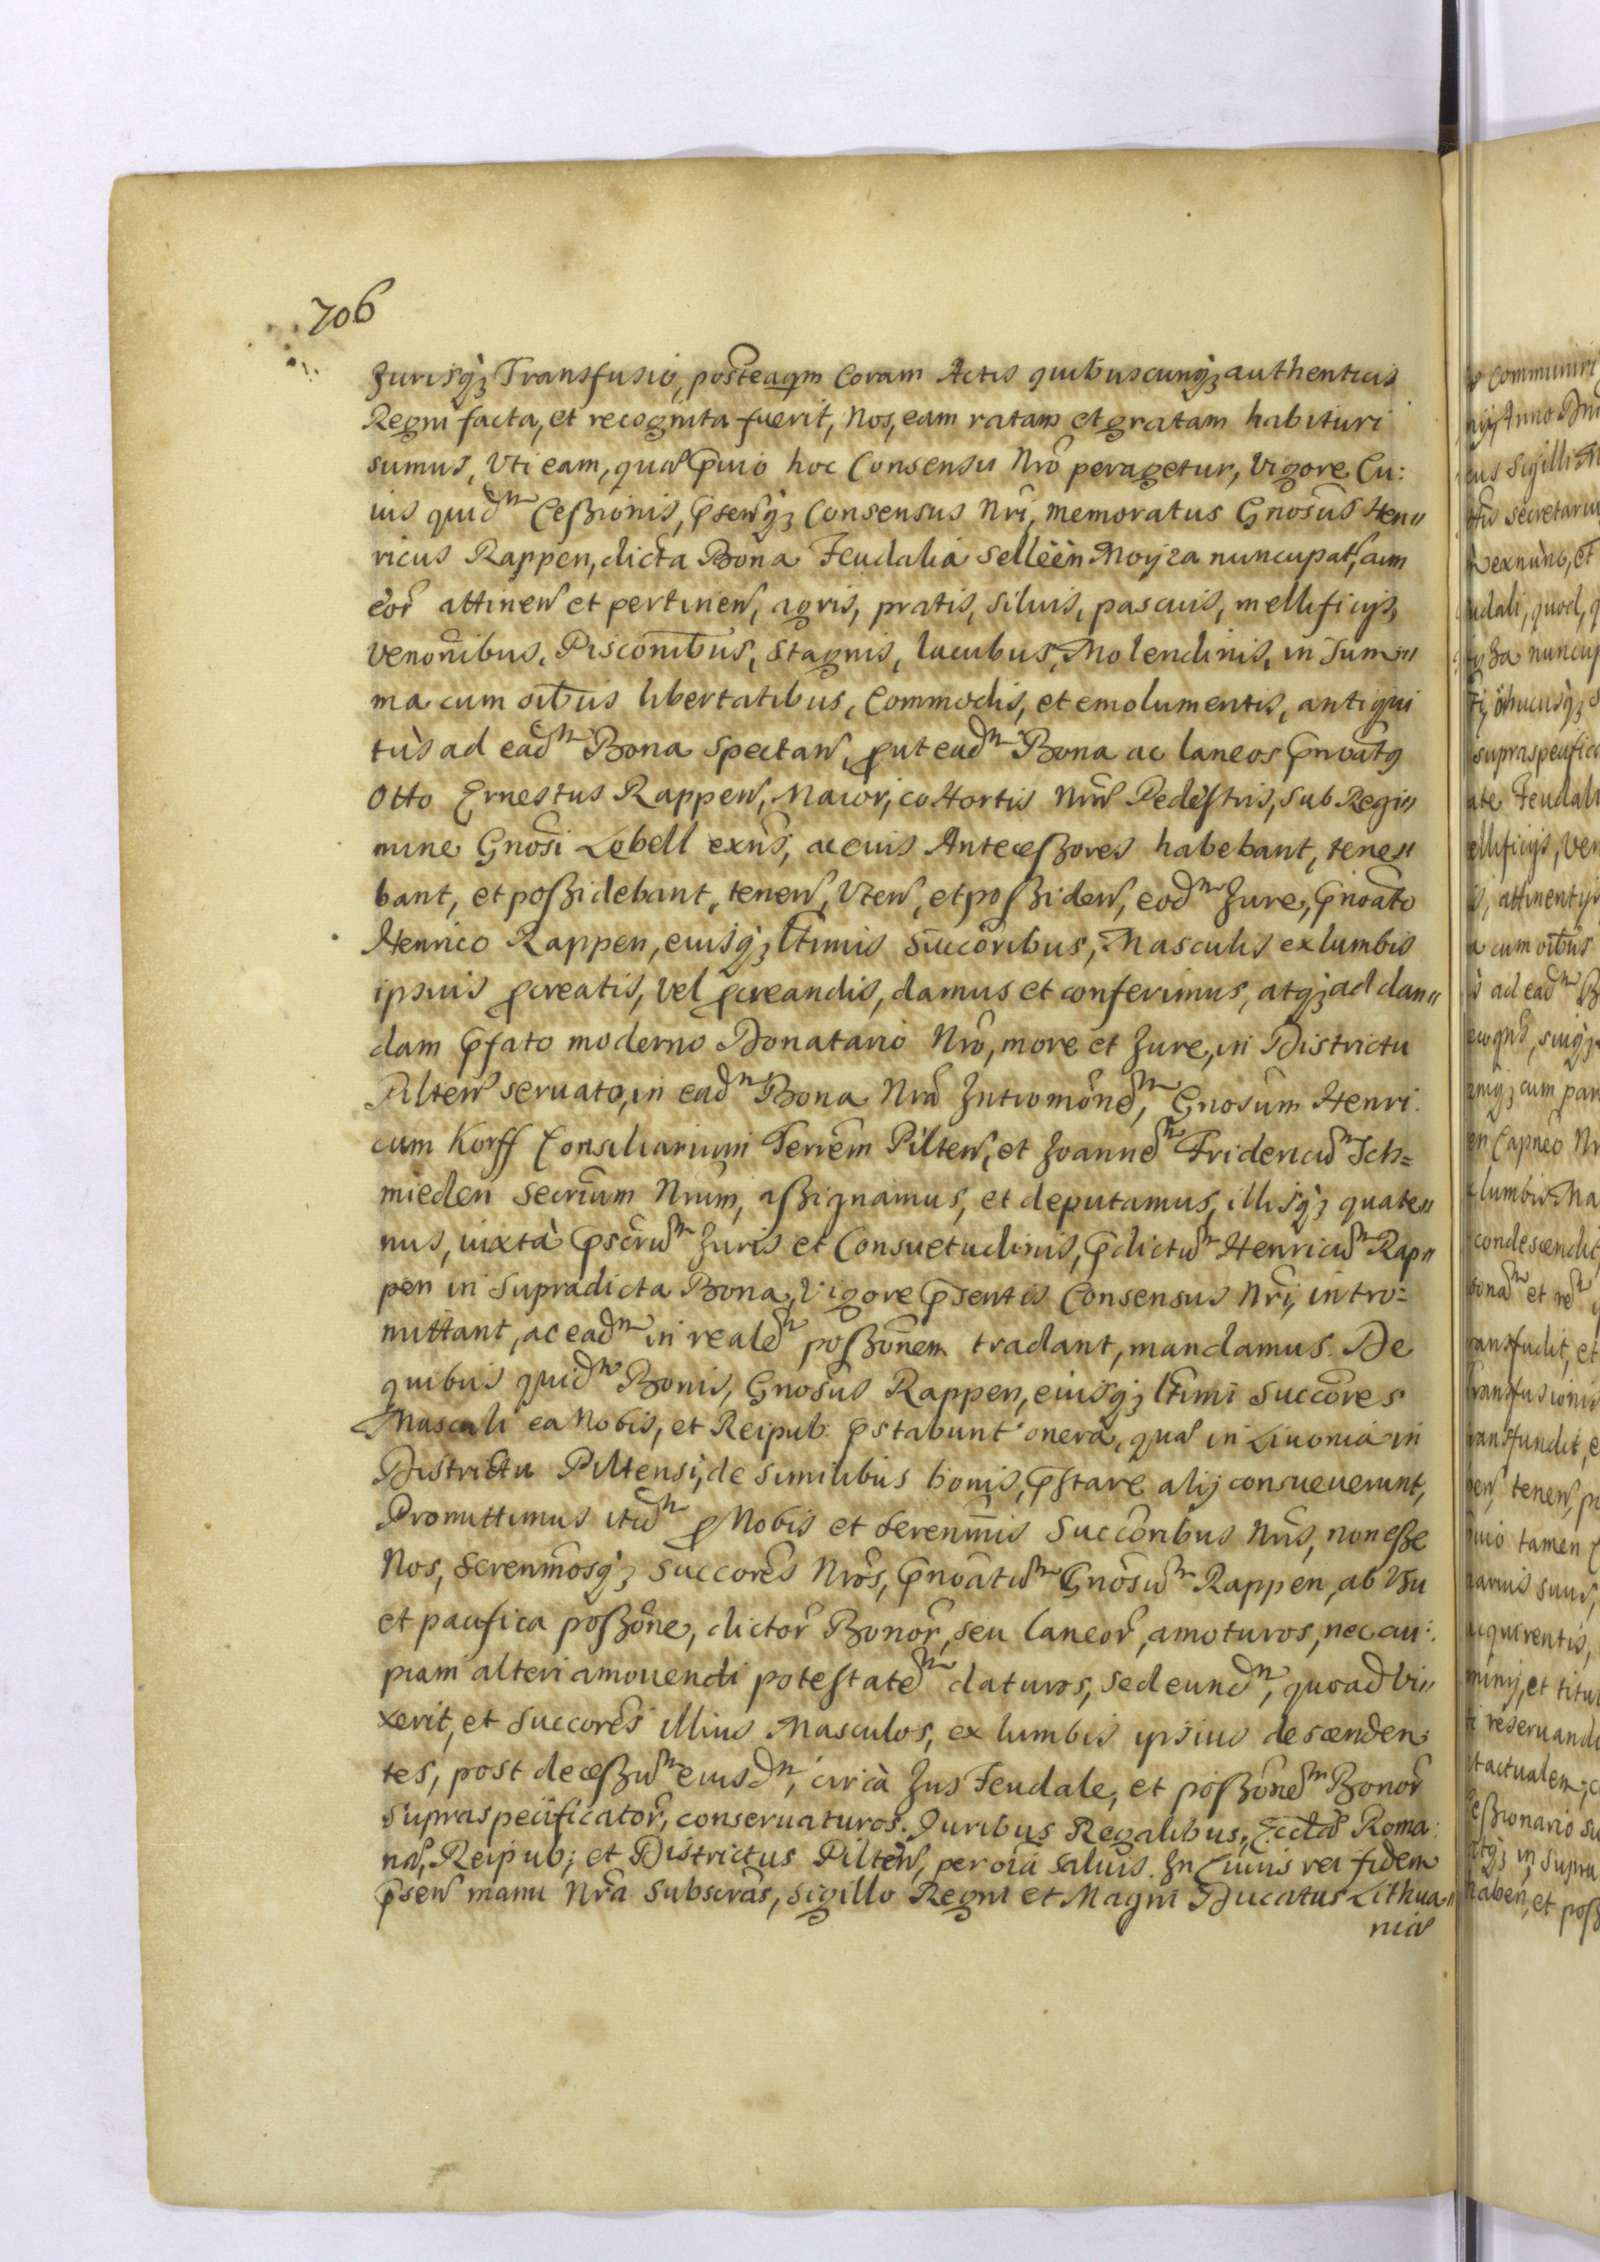 706
Jurisq; Transfusio, posteaqm Coram Actis quibuscunq; authenticis
Regni facta, et recognita fuerit, Nos, eam ratam et gratam habituri
sumus, Uti eam, quae p̄uio hoc Consensu Nr̄o peragetur, Vigore Cu:
ius quidm Ceßionis, p̄senq; Consensus Nr̄i, memoratus Gn̄osus Hen„
ricus Rappen, dicta Bona Feudalia Selleen Moyza nuncupat, cum
eor̄ attinen et pertinen, agris, pratis, siluis, pascuis, mellificijs,
venōnibus, Piscōnibus, Stagnis, lacubus, Molendinis, in Sum„
ma cum oībus libertatibus, Commodis, et emolumentis, antiqui
tùs ad eadm Bona Spectan, p̄ut eadm Bona ac laneos p̄nōatg
Otto Ernestus Rappen, Maior, coHortis Nr̄ae Pedestris, sub Regi„
mine Gn̄osi Lebell exn̄s, ac eius Anteceßores habebant, tene„
bant, et poßidebant, tenen, Uten, et poßiden, eodm Jure, p̄nōato
Henrico Rappen, eiusq; lt̄imis Succōribus, Masculis ex lumbis
ipsius p̄creatis, vel p̄creandis, damus et conferimus, atq; ad dan„
dam p̄fato moderno Donatario Nr̄o, more et Jure, in Districtu
Pilten seruato, in eadm Bona Nr̄a Intromōnem, Gn̄osum Henri:
cum Korff Consiliarium Terrēm Pilten, et Joannem Fridericum Sch=
mieden Secrīum Nr̄um, aßignamus, et deputamus, illisq; quate„
nus, iuxtà p̄scr̄um Juris et Consuetudinis, p̄dictum Henricum Rap„
pen in Supradicta Bona, Vigore p̄sentis Consensus Nr̄i, intro=
mittant, ac eadm in realem poßōnem tradant, mandamus. De
quibus quidm Bonis, Gn̄osus Rappen, eiusq; lt̄imi Succōres
Masculi ea Nobis, et Reipub: p̄stabunt onera, quae in Liuonia in
Districtu Piltensi, de similibus bonis, p̄stare alij consueuerunt,
Promittimus itum p̄ Nobis et Serenm̄is Succōribus Nr̄is, non eße
Nos, Serenm̄osq; Succōres Nr̄os, p̄nōatum Gn̄osum Rappen, ab Usu
et pacifica poßōne, dictor̄ Bonor̄, seu laneor̄, amoturos, nec cui:
piam alteri amouendi potestatem daturos, sed eundm, quoad Vi„
xerit, et Succōres illius Masculos, ex lumbis ipsius descenden:
tes, post deceßum eiusdm, circà Jus Feudale, et poßōnem Bonor̄
Supraspecificator̄, conseruaturos. Juribus Regalibus, Eccl̄ae Roma:
nae, Reipub; et Districtus Pilten, per oīa Saluis. In Cuius rei fidem
p̄sen manu Nr̄a Subscr̄as, Sigillo Regni et Magni Ducatus Lithua„
niae